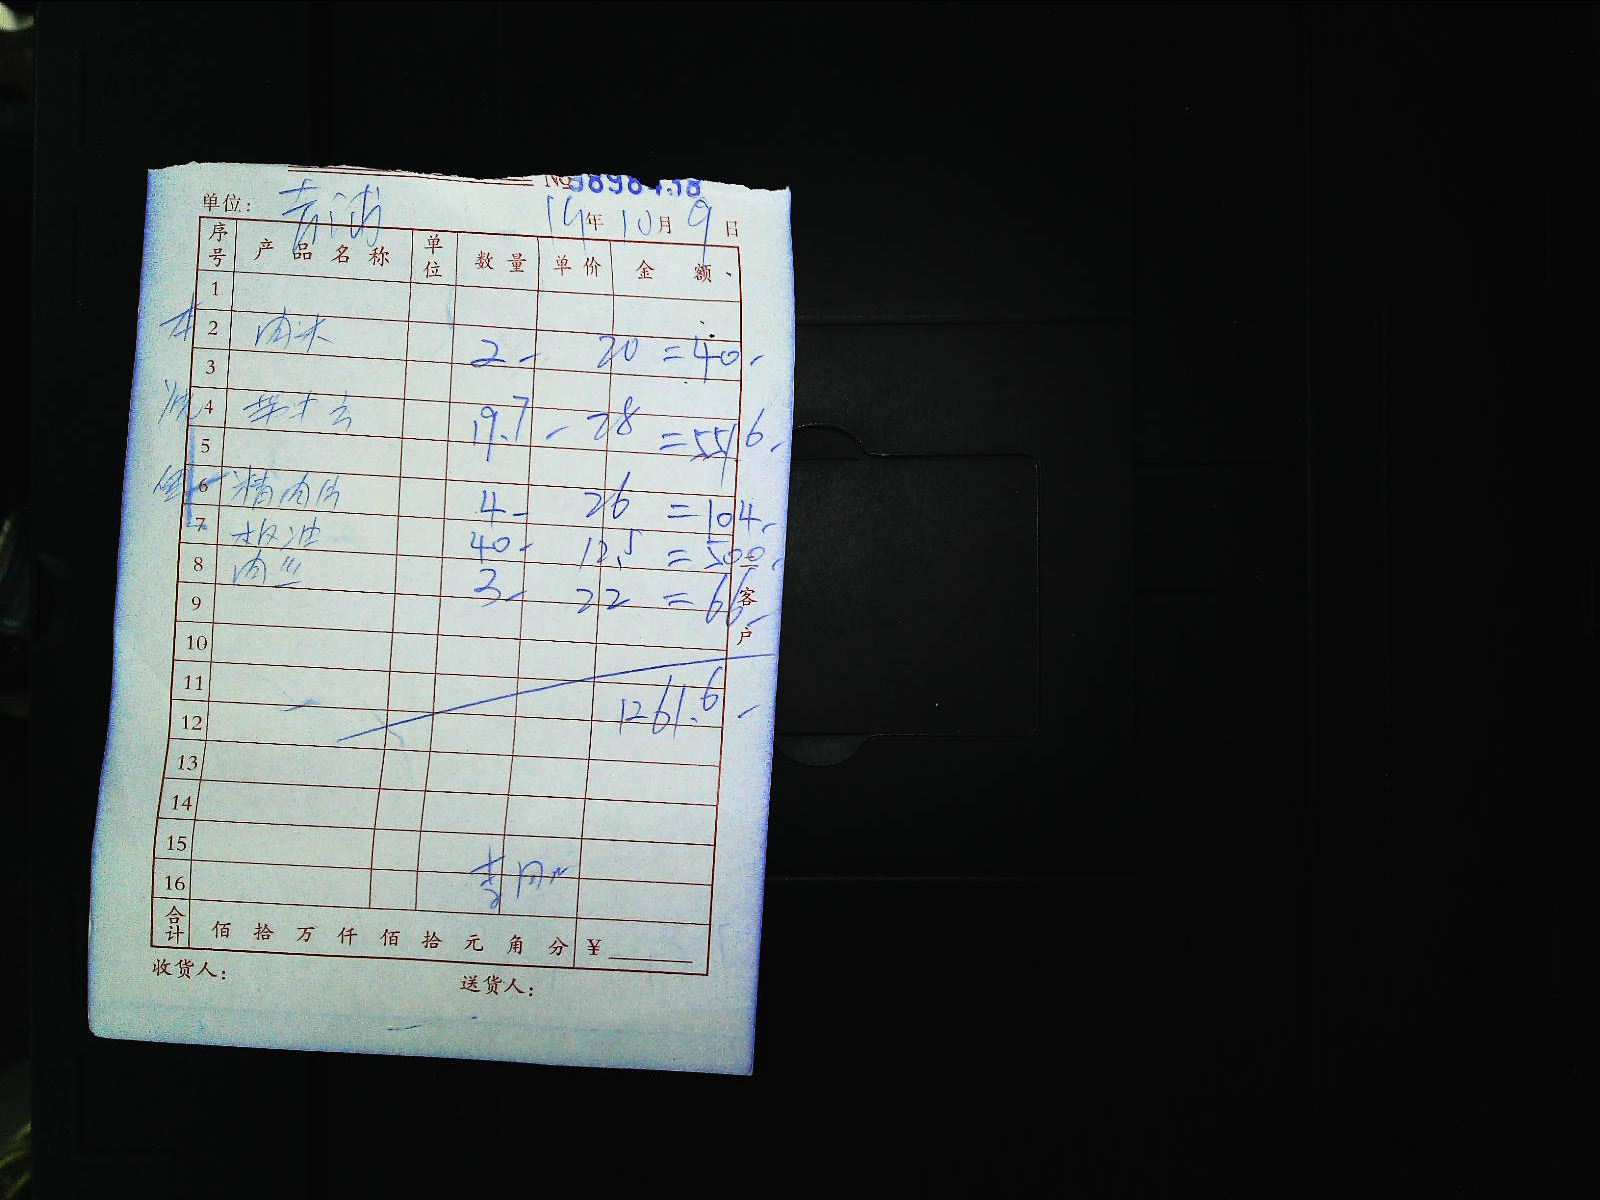 № 9898438
单位：
14年10月9日
序号 产品名称 单位 数量 单价 金额
1
2 肉末 2- 20 =40-
3
4 19.7- 28 =551.6-
5
6 精肉片 4- 26 =104-
7 板油 40- 12.5 =500-
8 肉丝 3- 22 =66-
9
10
11
12 1261.6-
13
14
15
16
合计 佰拾万仟佰拾元角分 ¥
收货人： 送货人：
客户